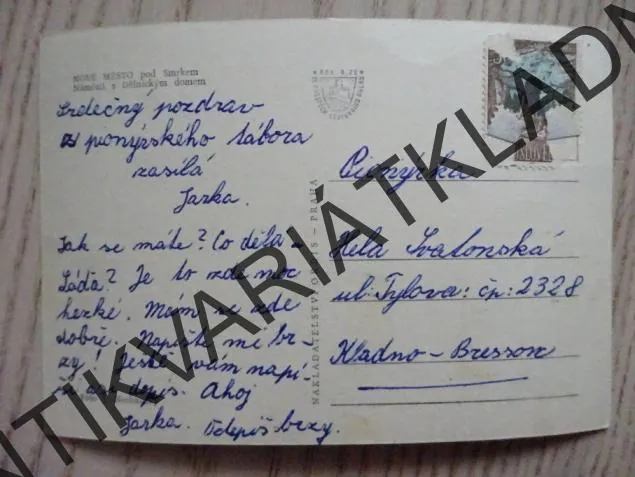 NOVÉ MĚSTO pod Smrkem
Náměstí s Dělnickým domem
Srdečný pozdrav
z pionýrského tábora
zasílá
Jarka.
Jak se máte? Co děla-
Láďa? Je to zde moc
hezké. Mám se zde
dobře. Napište mi br-
zy! Ještě vám napí-
dopis. Ahoj
Jarka. Odepiš brzy.
NAKLADATELSTVÍ ORBIS - PRAHA
Pionýrka
Hela Svatonská
ul: Tylova: čp: 2328
Kladno - Bresson
ANTIKVARIÁTKLADNO